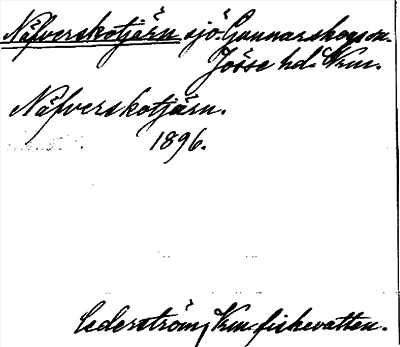 Näfverskotjärn sjö. Gunnarskogs sn.
Jösse hd. Vrm.
Näfverskotjärn.
1896.
Cederström, Vrm fiskevatten.